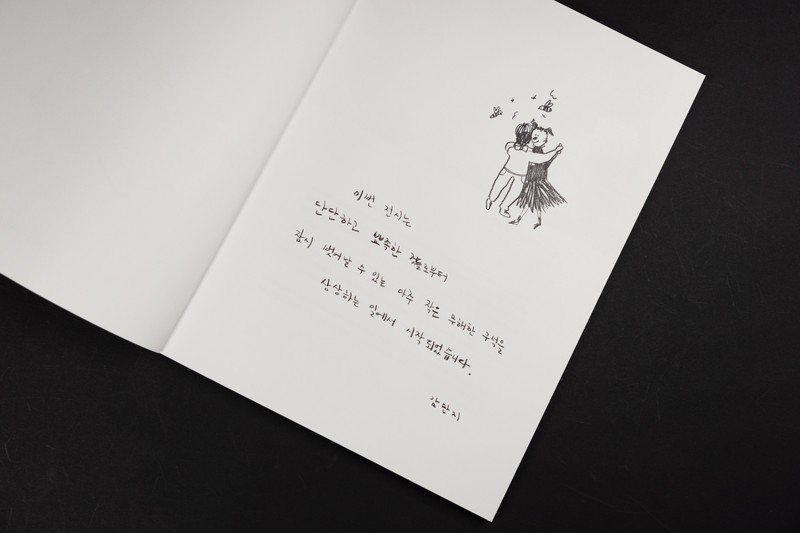 이번 전시는
단단하고 뾰족한 것들로부터
잠시 벗어날 수 있는 아주 작은 무해한 구석을
상상하는 일에서 시작되었습니다.
삼만지